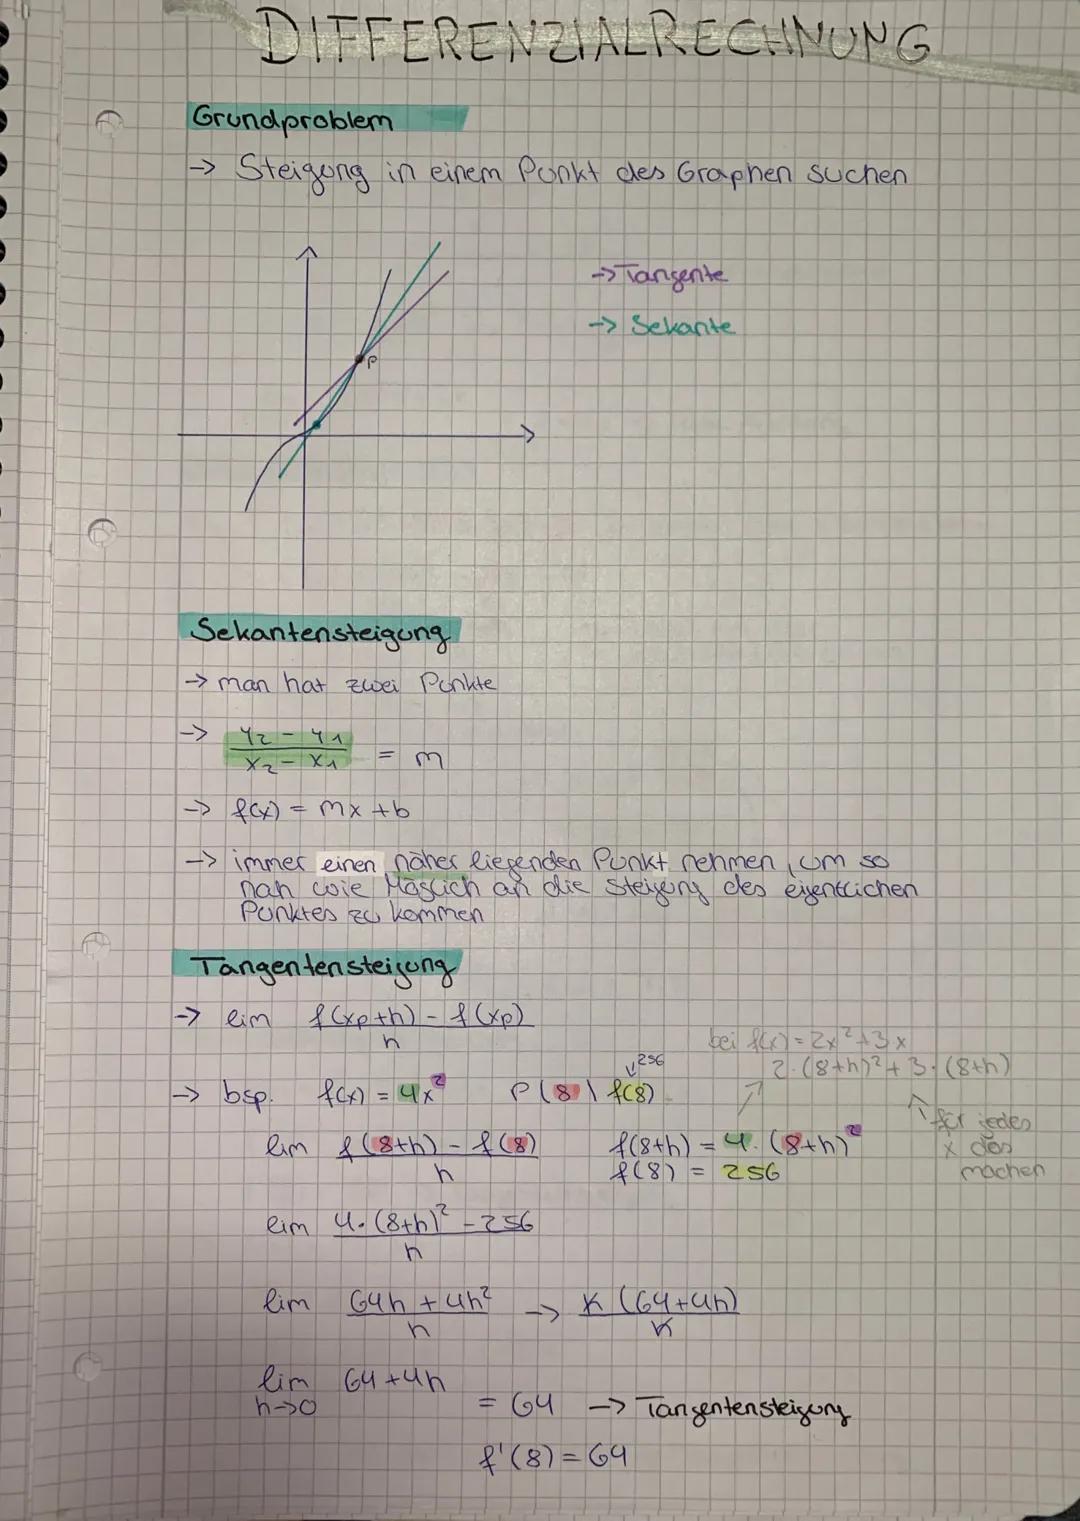 DIFFERENZIALRECHNUNG
Grundproblem
-> Steigung in einem Punkt des Graphen suchen
-> Tangente
-> Sekante
P
Sekantensteigung
-> man hat zwei Punkte
-> (y₂ - y₁)/(x₂ - x₁) = m
-> f(x) = mx + b
-> immer einen näher liegenden Punkt nehmen, um so
nah wie Möglich an die Steigung des eigentlichen
Punktes zu kommen
Tangentensteigung
-> lim (f(xp+h) - f(xp))/h
bei f(x) = 2x² + 3x
2·(8+h)² + 3·(8+h)
↓256
-> bsp. f(x) = 4x² P(8 \ f(8))
für jedes
x das
machen
lim (f(8+h) - f(8))/h f(8+h) = 4·(8+h)²
f(8) = 256
lim (4·(8+h)² - 256)/h
lim (64h + 4h²)/h -> h(64+4h)/h
lim 64+4h
h->0
= 64 -> Tangentensteigung
f'(8) = 64